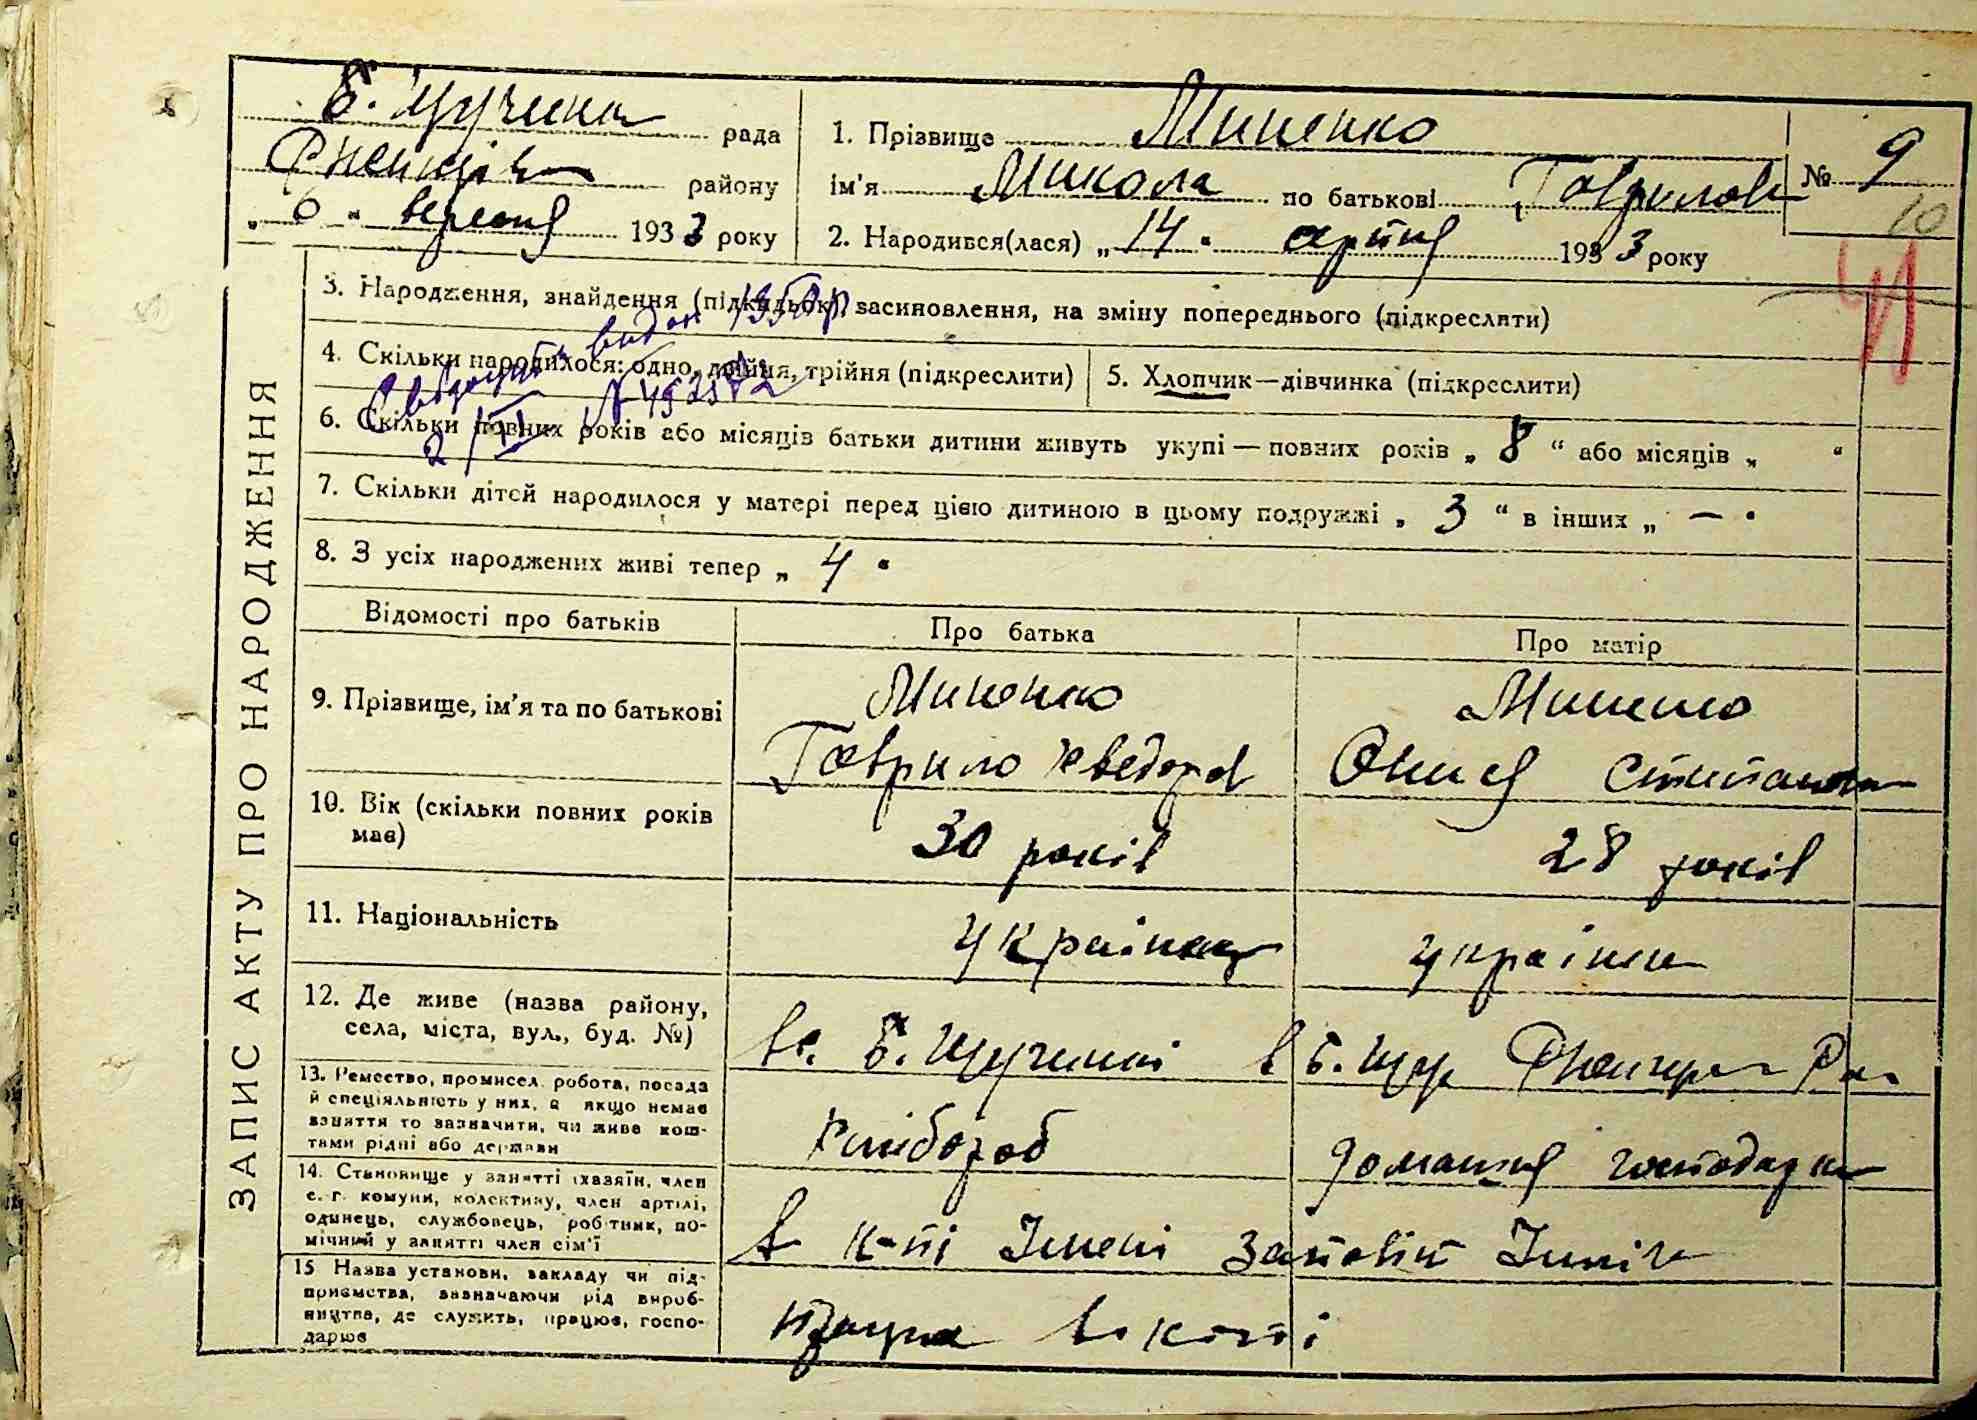 Б. Щучинка рада
району
„ 6 “ вересня 1933 року
1. Прізвище Миненко
ім'я Микола по батькові Гаврилов
2. Народився(лася) „ 14 “ серпня 1933 року
№ 9
10
ЗАПИС АКТУ ПРО НАРОДЖЕННЯ
3. Народження, знайдення (підкидьок), засиновлення, на зміну попереднього (підкреслити)
видан 1950 р.
4. Скільки народилося: одно, двійня, трійня (підкреслити)
5. Хлопчик—дівчинка (підкреслити)
6. Скільки повних років або місяців батьки дитини живуть укупі — повних років „ 8 “ або місяців „ “
7. Скільки дітей народилося у матері перед цією дитиною в цьому подружжі „ 3 “ в інших „ — “
8. З усіх народжених живі тепер „ 4 “
Відомості про батьків
Про батька
Про матір
9. Прізвище, ім'я та по батькові
Миненко
Гаврило
Миненко
Онися
10. Вік (скільки повних років
має)
30 років
28 років
11. Національність
українец
українка
12. Де живе (назва району,
села, міста, вул., буд. №)
в с. Б. Щучинці
в Б. Щуч
13. Ремество, промисел, робота, посада
й спеціяльність у них, а якщо немає
заняття то зазначити, чи живе кош-
тами рідні або держави
хлібороб
домашня господарка
14. Становище у занятті (хазяїн, член
с.-г. комуни, колективу, член артілі,
одинець, службовець, робітник, по-
мічний у занятті член сім'ї
в к-пі Імені Заповіт Ілліча
15 Назва установи, закладу чи під-
приємства, зазначаючи рід вироб-
ництва, де служить, працює, госпо-
дарює
працює в